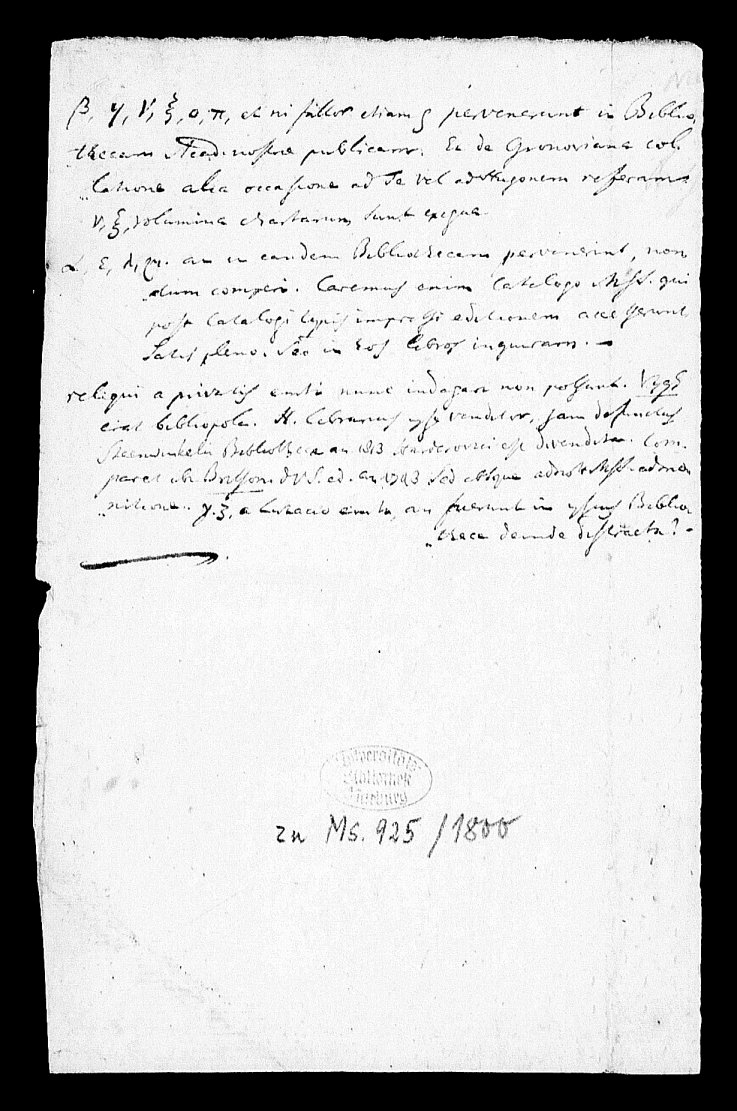 β, γ, ν, ξ, ο, π, et ni fallor etiam ς pervenerunt in Biblio,
thecam Acad. nostrae publicam. Ea de Gronoviana col,
„latione alia occasione ad Te vel ad Hugonem referam.
ν, ξ, volumina chartarum sunt exigua.
α, ε, λ, μ. an in eandem Bibliothecam pervenerint, non
dum comperi. Caremus enim Catalogo MSS. qui
post Catalogi typis impressi editionem accesserunt
satis pleno. Sed in eos libros inquiram. –
reliqui a privatis emti nunc indagari non possunt.
erat bibliopola. H. librarius venditor, jam defunctus
Bibliotheca an 1813 Harderovici est divendita. Com,
paret ibi Brisson. d. V. S. ed. an 1743 sed absque adnot. MSS. admo
„nitione. γ. ξ, a emta, an fuerunt in ipsius Biblio
„theca deinde distracta? –
Universitäts
Bibliothek
Marburg
zu Ms. 925 / 1800